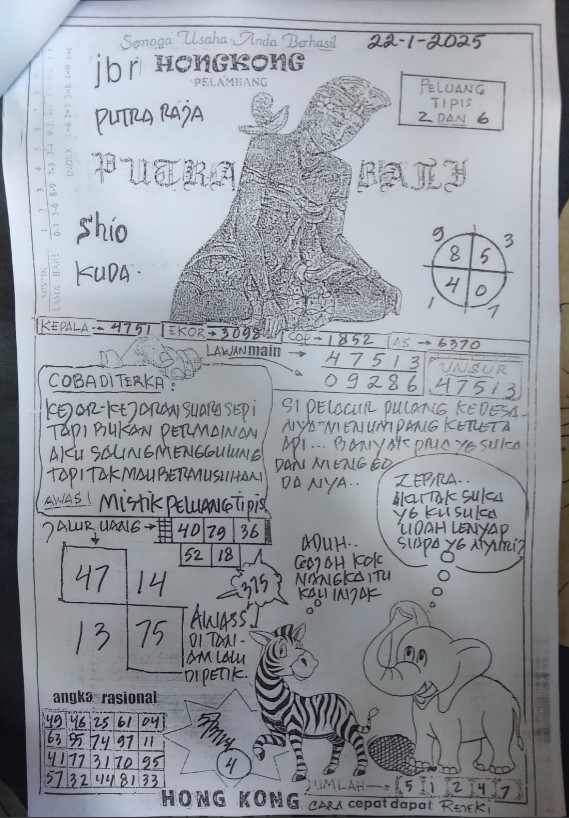 Semoga Usaha Anda Berhasil
22-1-2025
jbr HONGKONG
PELAMBANG
PUTRA RAJA
PELUANG
TIPIS
2 DAN 6
PUTRA BALI
Shio
KUDA
9 3
8 5
4 0
1 7
KEPALA → 4751 EKOR → 3098 COP → 1852 AS → 6370
LAWAN main → 4 7 5 1 3
0 9 2 8 6
UNSUR
47513
COBA DITERKA :
KEJAR-KEJARAN SUARA SEPI
TAPI BUKAN PERMAINAN
AKU SALING MENGGULUNG
TAPI TAK MAU BERMUSUHAN
AWAS! Mistik PELUANG Tipis
SI PELACUR PULANG KEDESA
NYA MENUMPANG KERETA
API... BANYAK PRIA YG SUKA
DAN MENGGO
DA NYA..
ZEBRA..
AKU TAK SUKA
YG KU SUKA
UDAH LENYAP
SIAPA YG NYARI?
JALUR UANG → 40 79 36
52 18
315
47 14
13 75
ADUH..
GAJAH KOK
NANGKA ITU
KAU INJAK
AWASS
DI TAN-
AM LALU
DI PETIK.
angka rasional
49 46 25 61 04
63 95 74 97 11
41 77 31 70 95
57 32 44 81 33
4
JUMLAH → 5 1 2 4 7
HONG KONG CARA cepat dapat REJEKI